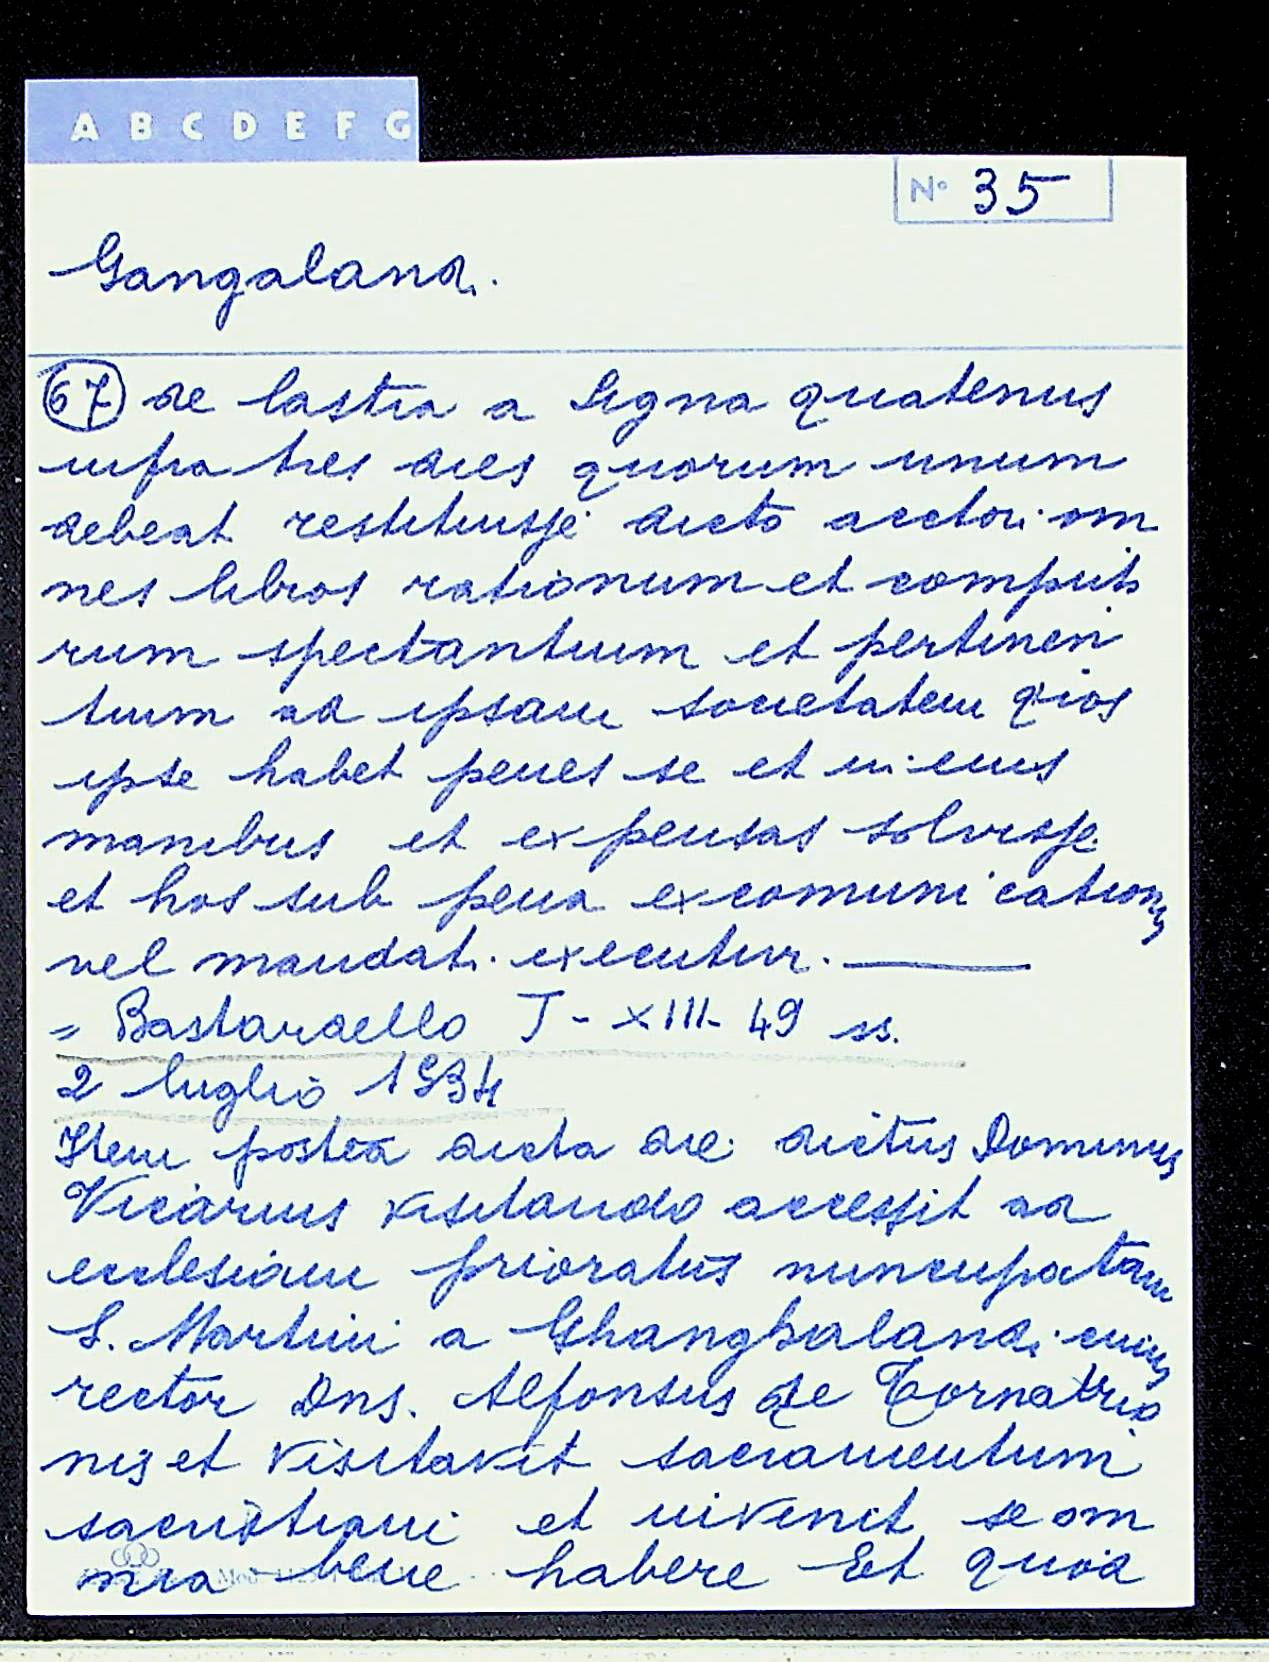 A B C D E F G
N° 35
Gangalandi.
67 de lastra a Signa quatenus
infra tres dies quorum unum
debeat restituisse dicto actori om
nes libros rationum et computo
rum spectantium et pertinen
tium ad ipsam societatem quos
ipse habet penes se et in eius
manibus et expensas solvisse
et hos sub pena excomunicationis
vel mandat. executur.
= Bastardello I - XIII - 49 ss.
2 luglio 1534
Item postea dicta die dictus Dominus
Vicarius visitando accessit ad
ecclesiam prioratus nuncupatam
S. Martini a Ghanghalandi cuius
rector Dns. Alfonsus de Tornabuo
nis et visitavit sacramentum
sacristiam et invenit se om
nia bene habere Et quia